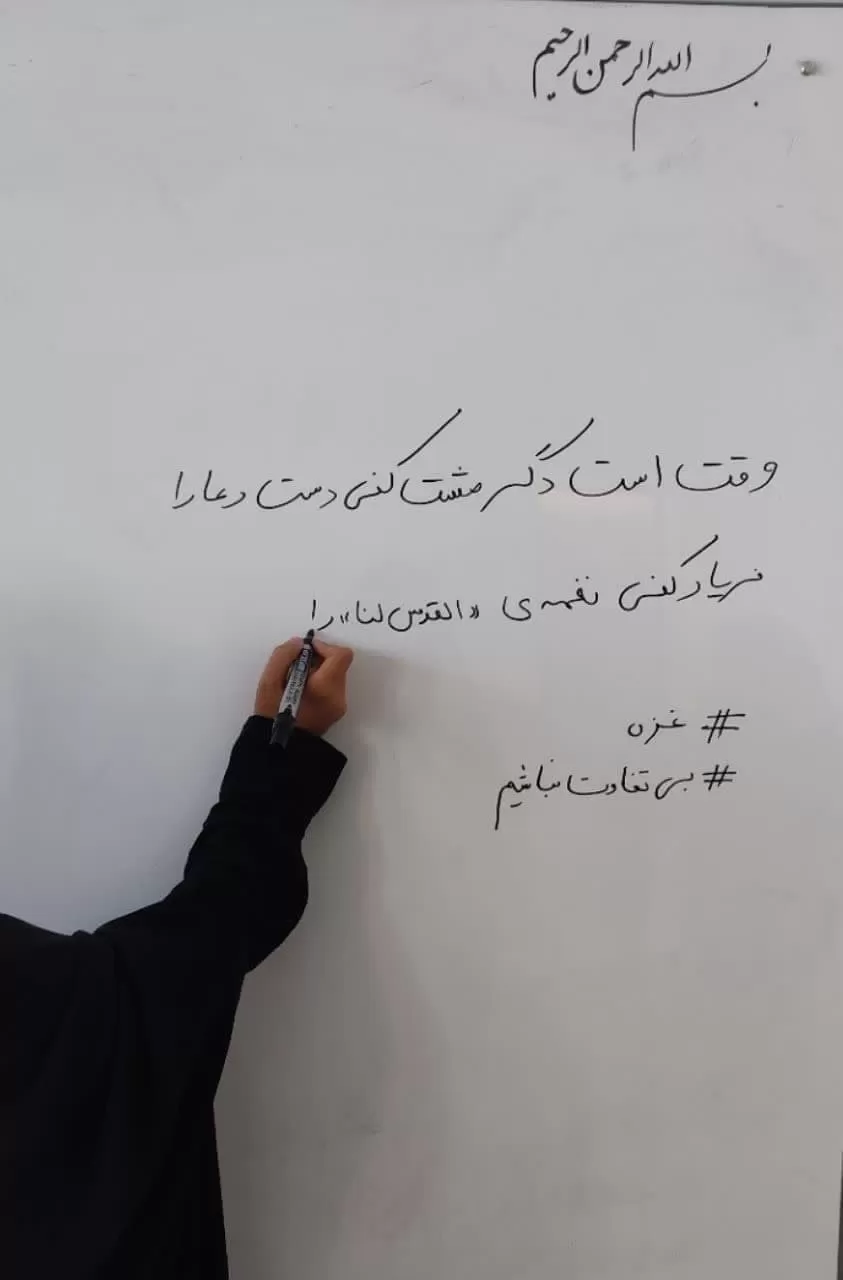 بسم الله الرحمن الرحیم
وقت است دگر مشت کنی دست دعا را
فریاد کنی نغمه ی «القدس لنا» را
# غزه
# بی تفاوت نباشیم